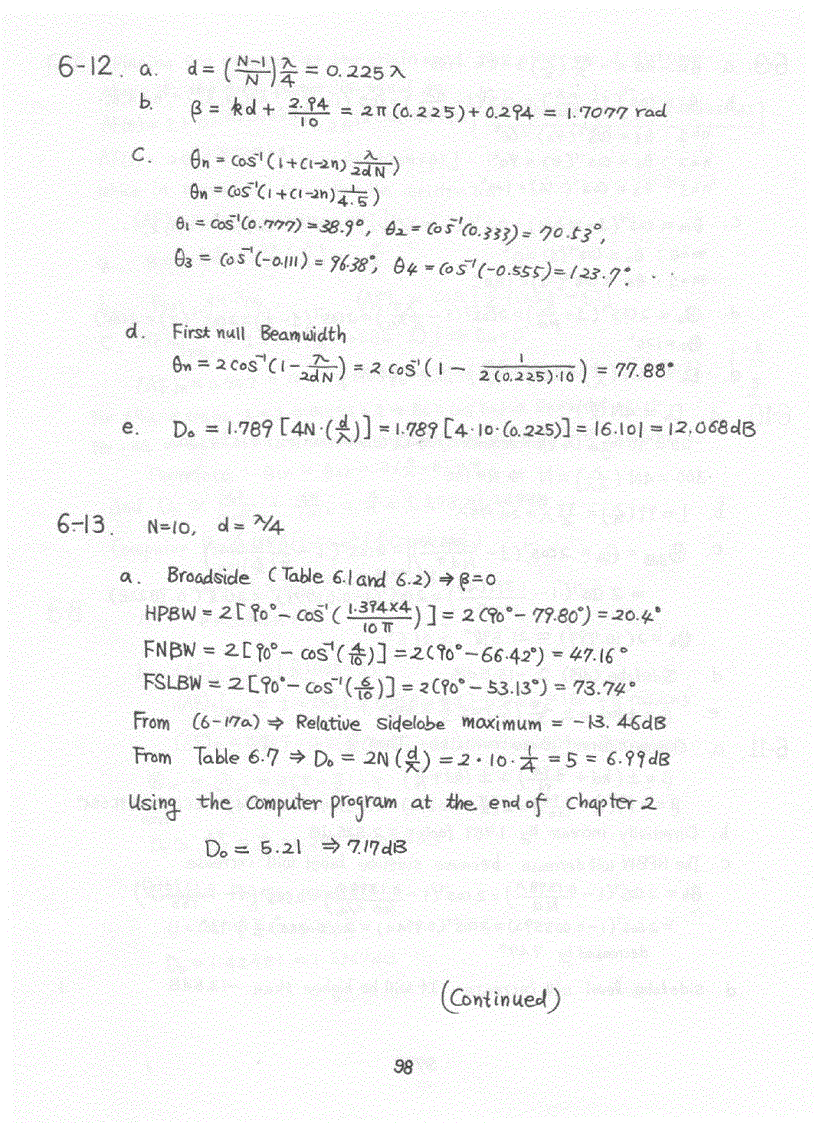 6-12. a. d = (N-1/N) λ/4 = 0.225 λ
b. β = kd + 2.94/10 = 2π(0.225) + 0.294 = 1.7077 rad
c. θn = cos⁻¹(1+(1-2n) λ/2dN)
θn = cos⁻¹(1+(1-2n) 1/4.5)
θ1 = cos⁻¹(0.777) = 38.9°, θ2 = cos⁻¹(0.333) = 70.53°,
θ3 = cos⁻¹(-0.111) = 96.38°, θ4 = cos⁻¹(-0.555) = 123.7°. . .
d. First null Beamwidth
θn = 2 cos⁻¹(1 - λ/2dN) = 2 cos⁻¹(1 - 1/2(0.225)·10) = 77.88°
e. D₀ = 1.789 [4N·(d/λ)] = 1.789 [4·10·(0.225)] = 16.101 = 12.068dB
6-13. N=10, d = λ/4
a. Broadside (Table 6.1 and 6.2) ⇒ β=0
HPBW = 2[90° - cos⁻¹(1.394×4/10π)] = 2(90° - 79.80°) = 20.4°
FNBW = 2[90° - cos⁻¹(4/10)] = 2(90° - 66.42°) = 47.16°
FSLBW = 2[90° - cos⁻¹(6/10)] = 2(90° - 53.13°) = 73.74°
From (6-17a) ⇒ Relative sidelobe maximum = -13.46dB
From Table 6.7 ⇒ D₀ = 2N(d/λ) = 2·10·1/4 = 5 = 6.99dB
Using the computer program at the end of Chapter 2
D₀ = 5.21 ⇒ 7.17dB
(Continued)
98